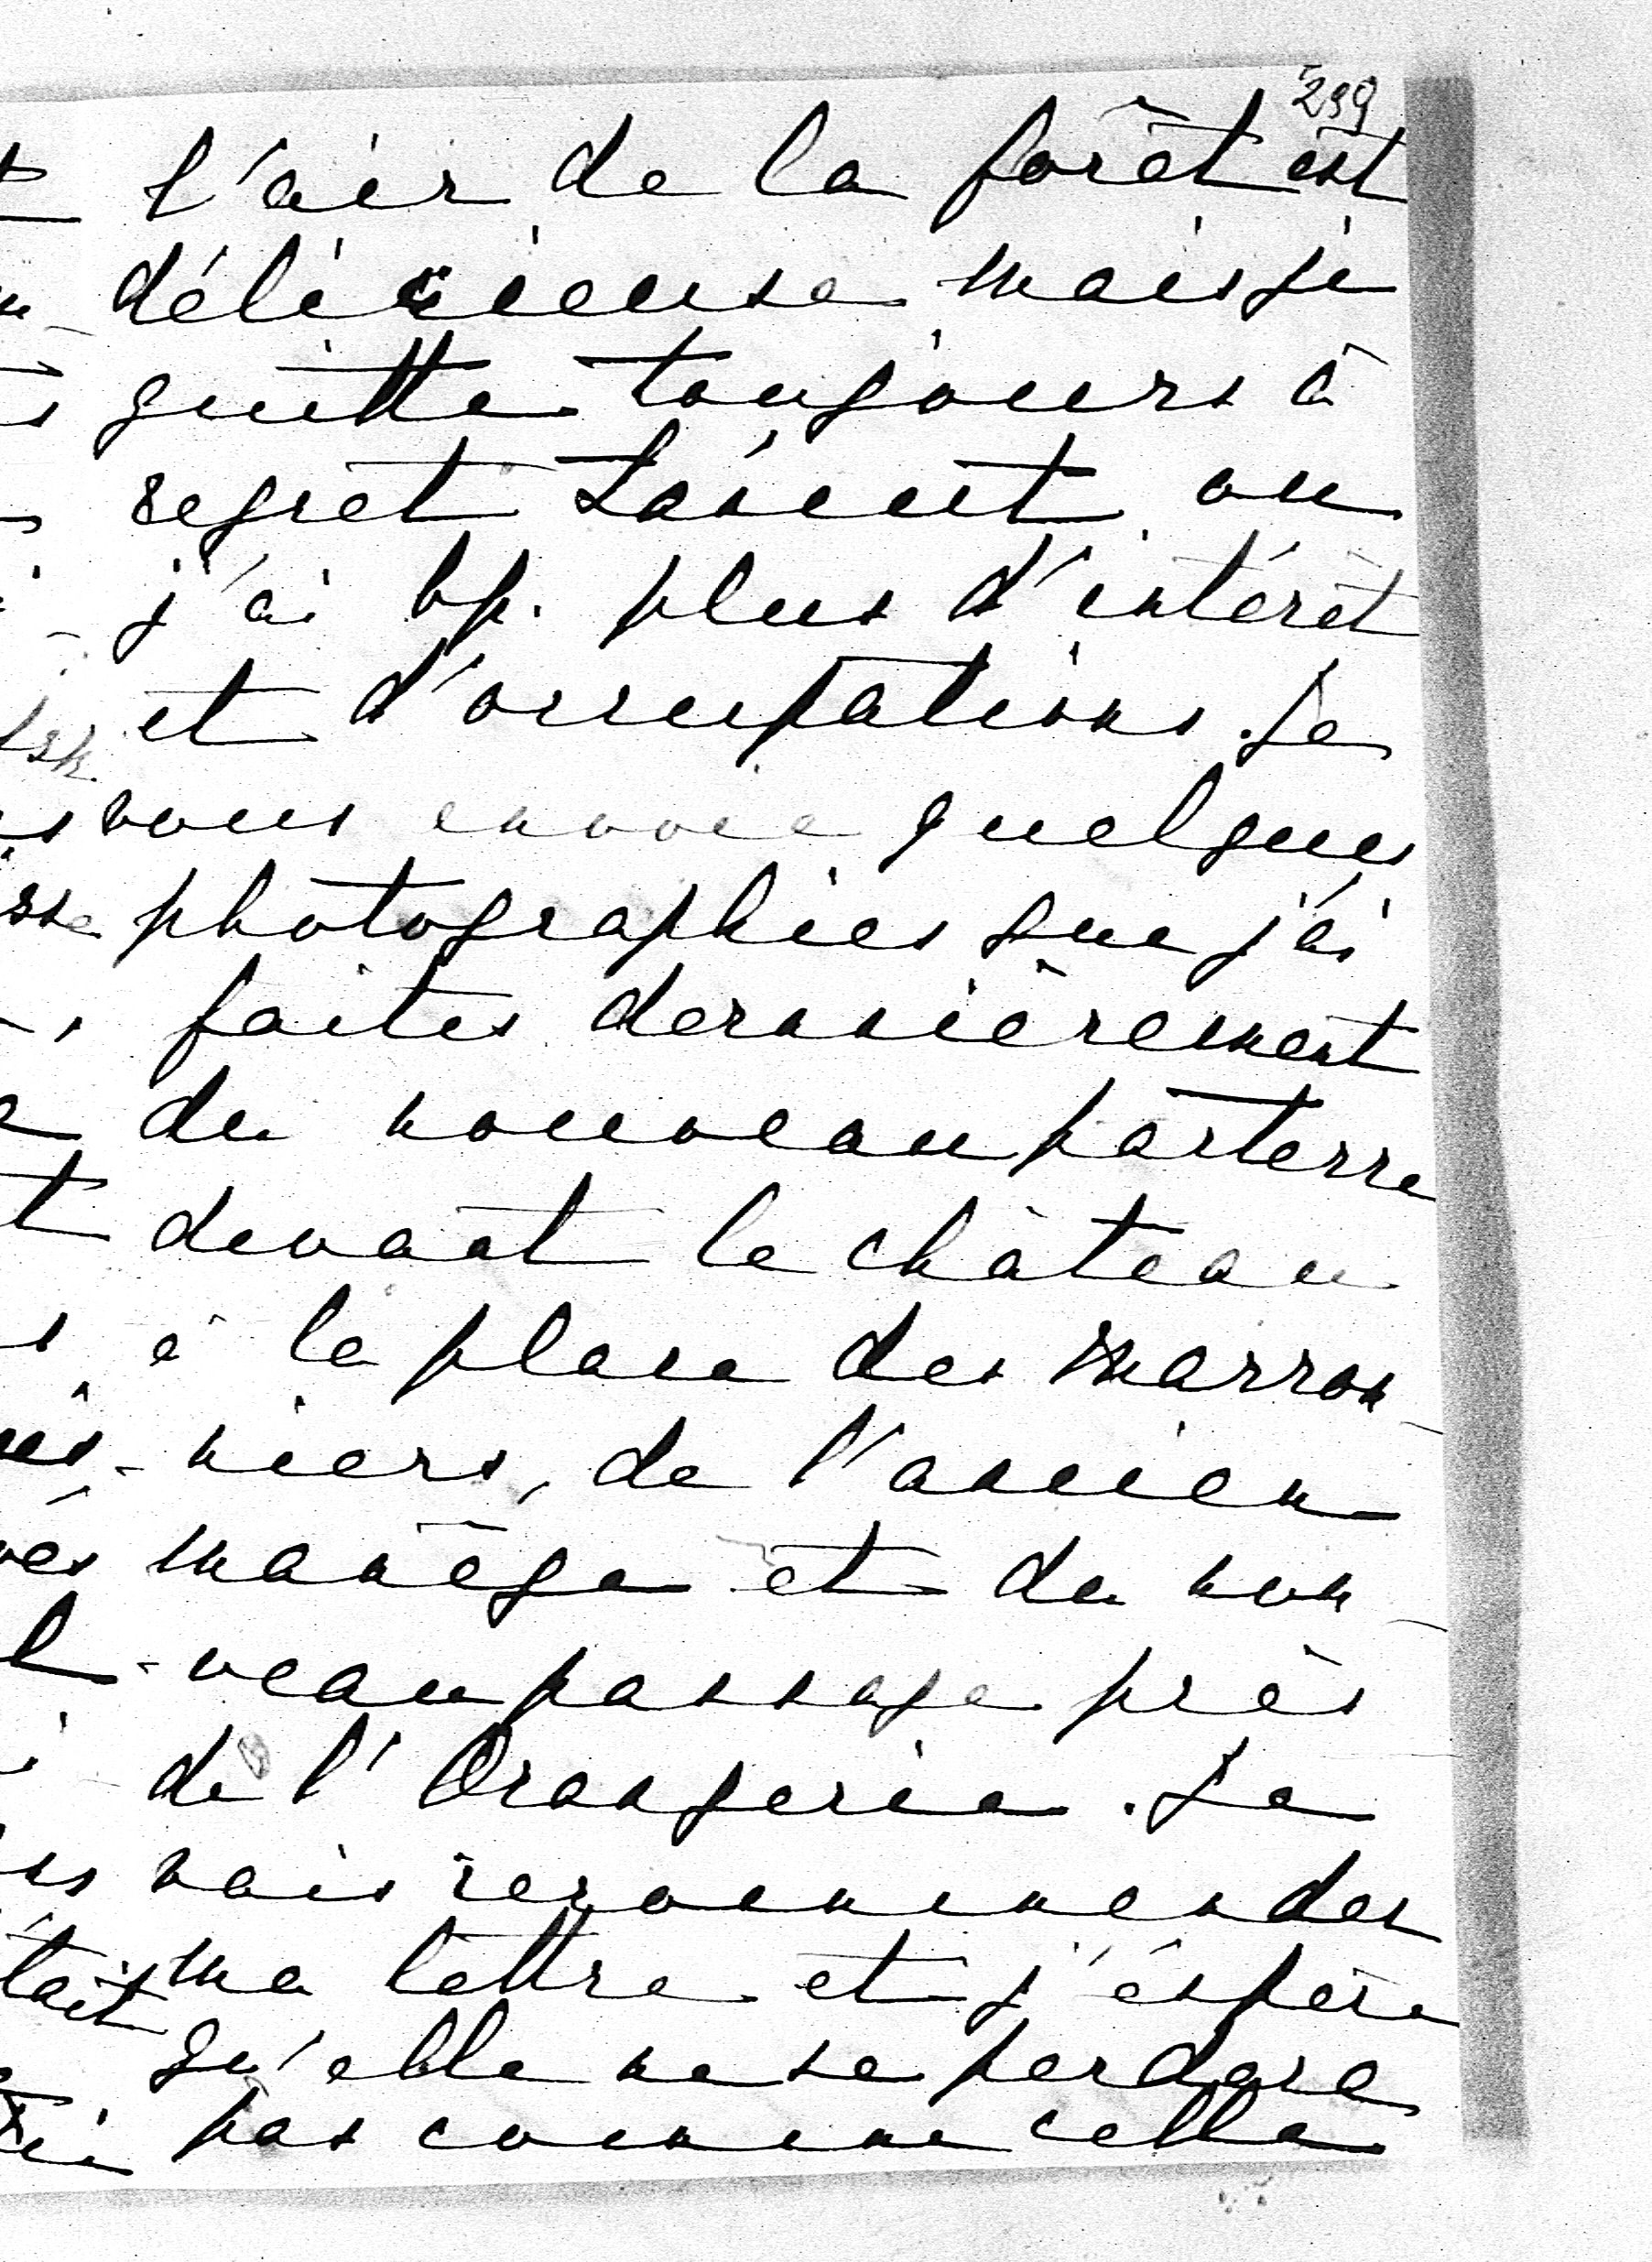 239
l'air de la forêt est
délicieuse mais je
quitte toujours à
regret Łańcut ou
j'ai bp. plus d'intérêt
et d'occupations. Je
vous envoie quelques
photographies que j'ai
faites dernièrement
du nouveau parterre
devant le château
à la place des marron-
-niers, de l'ancien
manège et du nou-
-veau passage près
de l'Orangerie. Je
vais recommander
ma lettre et j'éspère
qu'elle ne se perdera
pas comme celle